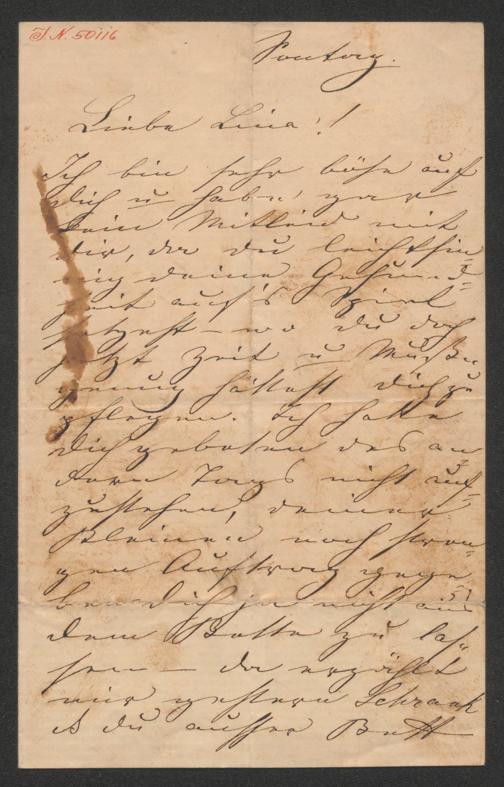 J. N. 50116
Sontag.
Liebe Lina!!
Ich bin sehr böse auf
dich u habe gar
kein Mitleid mit
dir, da du leichtsin=
nig deine Gesund=
heit auf's Spiel
setzest – wo du doch
jetzt Zeit u Muße
genug hättest dich zu
pflegen. Ich hatte
dich gebeten des an=
dern Tags nicht auf=
zustehen, deiner
Kleinen noch stren=
gen Auftrag gege
ben dich ja nicht aus
dem Bette zu las=
sen – da erzählt
mir gestern Schrank
du ausser Bett